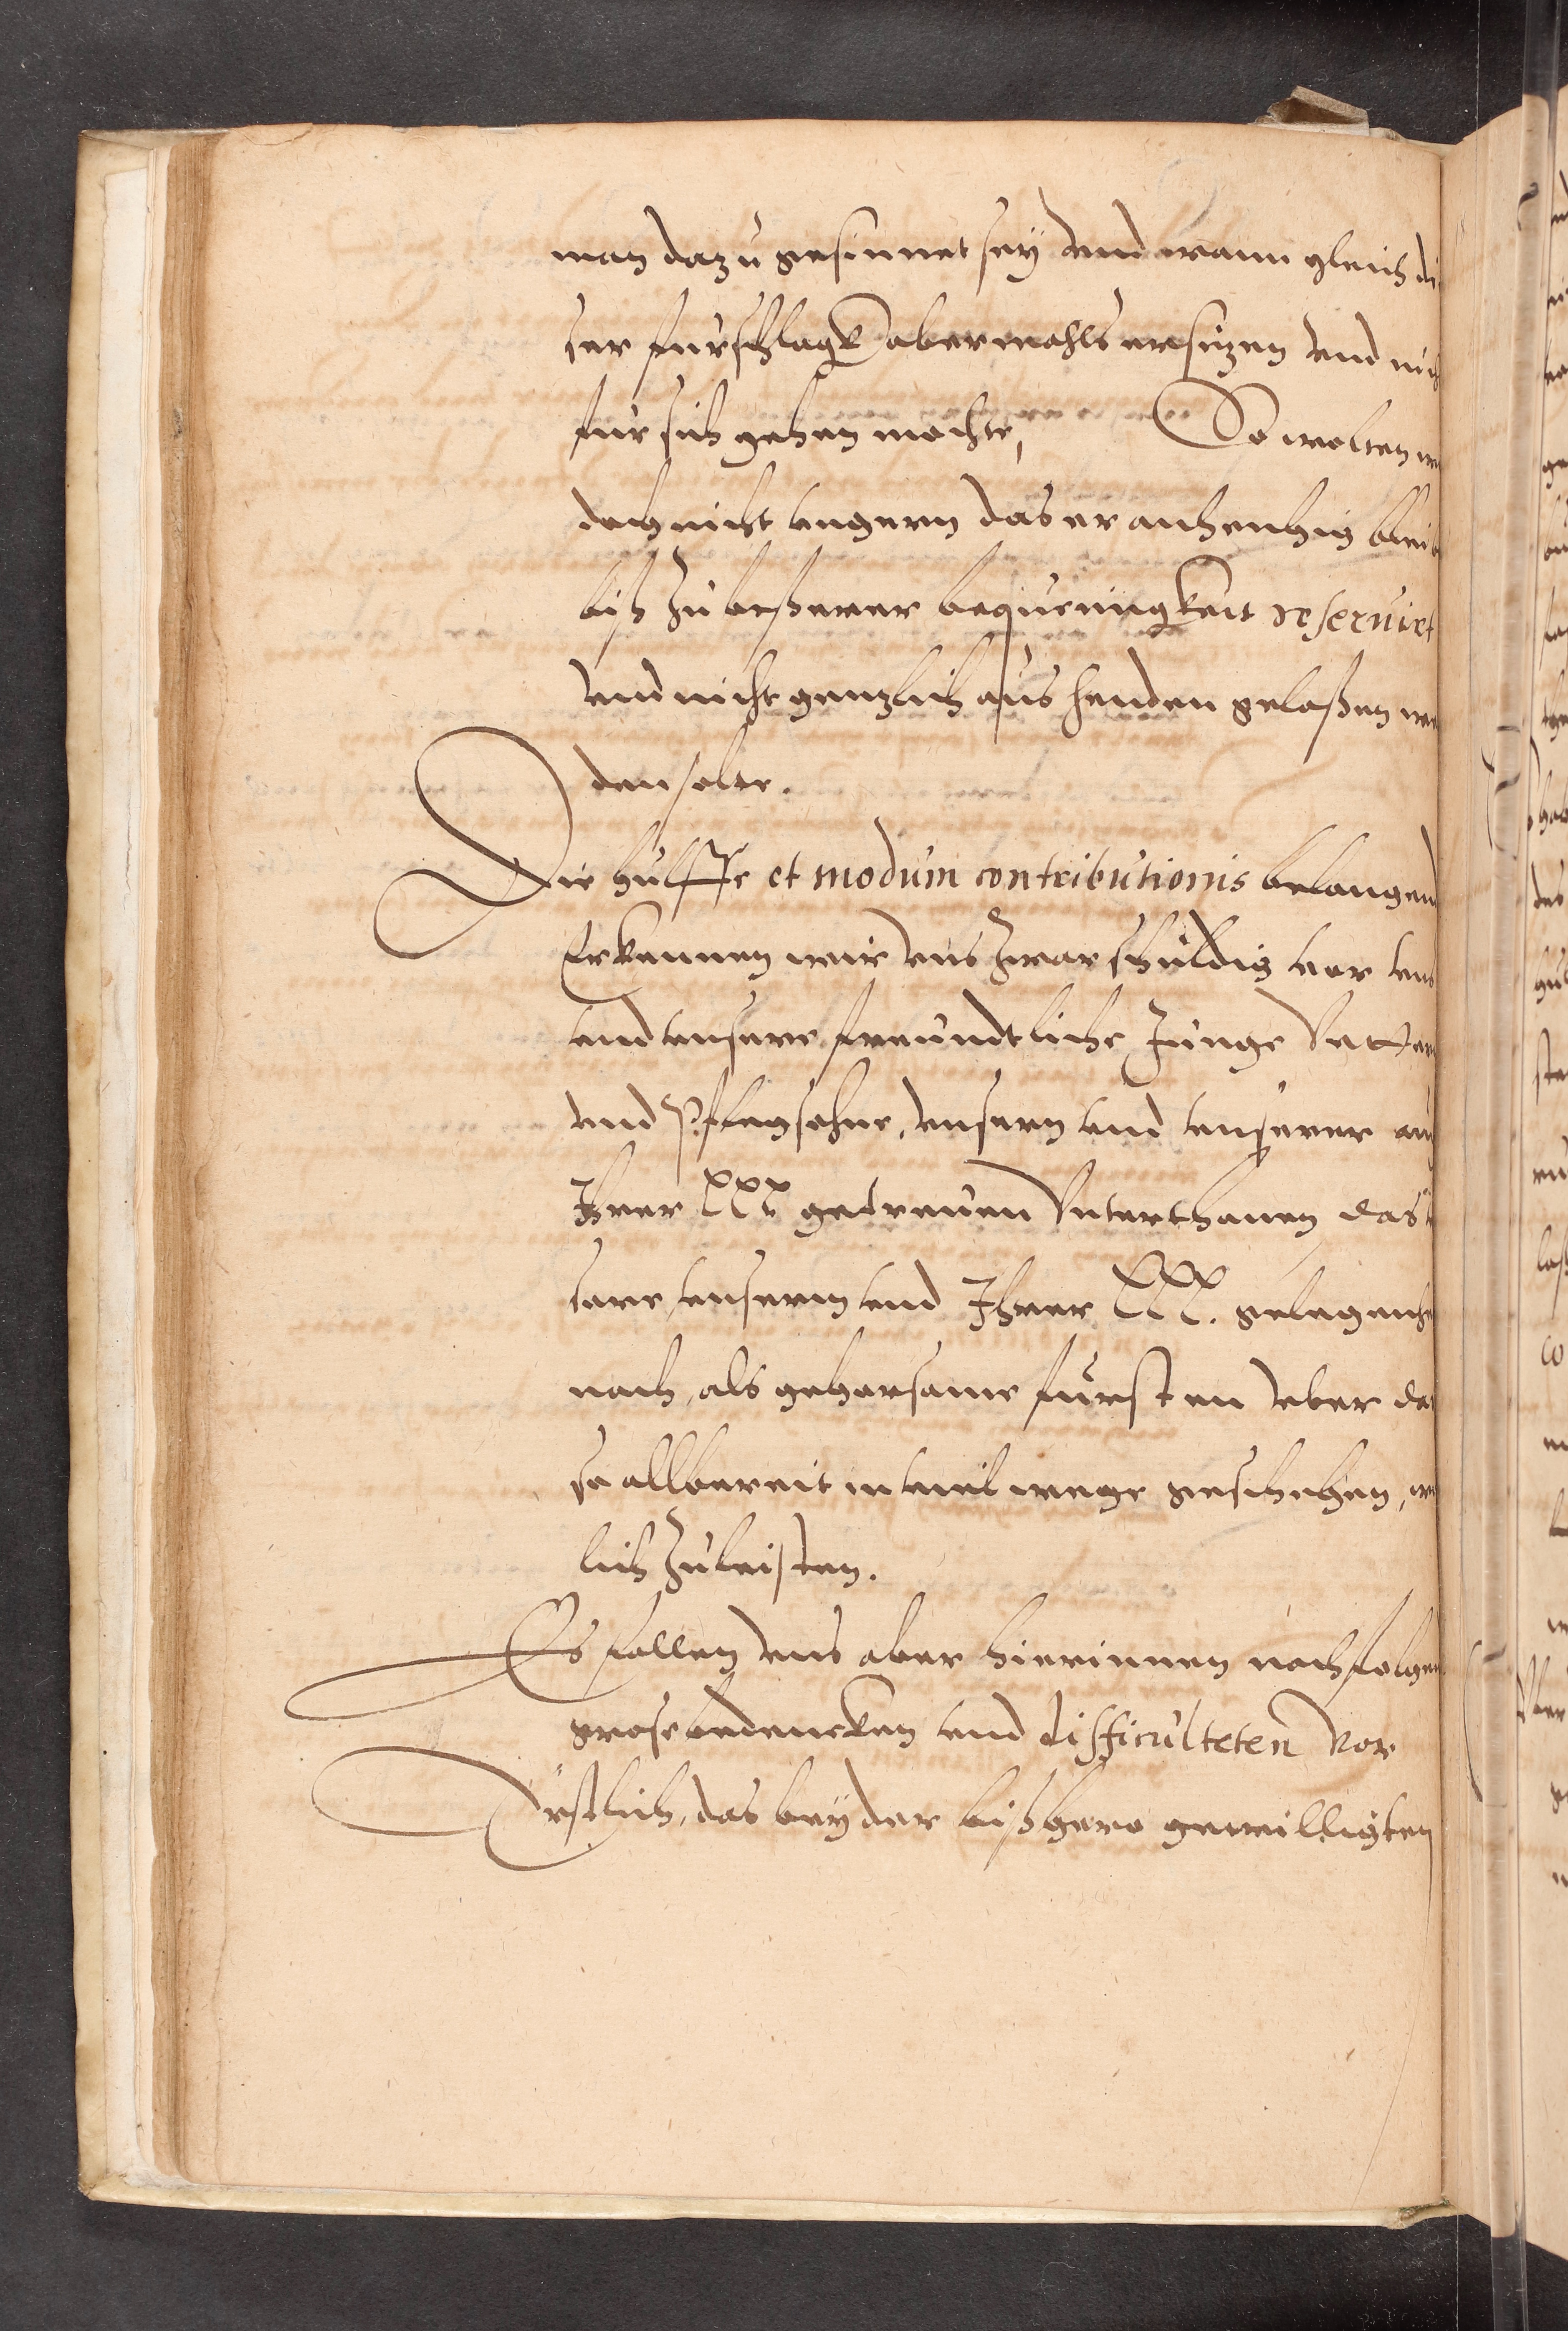 man dazu gesinnet sey vnd wann gleich di
ser furschlagk abermahls ersitzen vnd nich
fur sich gehen mochte, So wolten wi
doch nicht vngern das er anhengig bleib
biß zu beßerer bequemigkeit reseruirt
vnd nicht gentzlich aus henden gelaßen wer
den solte.
Die hulffe et modum contributionis belangend
Erkennen wir vns zwar schuldig vor vns
vnd vnsere freundtliche Junge Vettern
vnd Pflegsohne, vnsern vnd vnserer auch
Jhrer LLL getreuen Vnterthanen das
sere, vnserm vnd Jhrer LLL. gelegenhe
nach, als gehorsame fursten vber das
so allbereit in viel wege geschehen,
lich zuleisten.
Es fallen vns aber hierinnen nachfolgen
grose bedencken vnd difficulteten vor
Erstlich, das bey der bißhero gewilligten